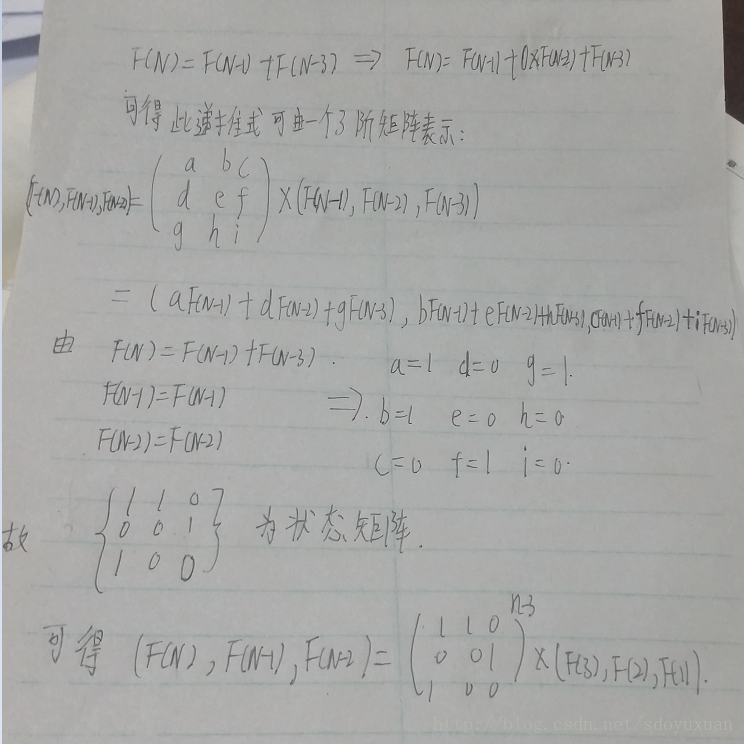 F(N)=F(N-1)+F(N-3) ⇒ F(N)=F(N-1)+0×F(N-2)+F(N-3)
可得此递推式可由一个3阶矩阵表示:
(F(N),F(N-1),F(N-2))=(a b c
d e f
g h i)×(F(N-1),F(N-2),F(N-3))
=(aF(N-1)+dF(N-2)+gF(N-3),bF(N-1)+eF(N-2)+hF(N-3),cF(N-1)+fF(N-2)+iF(N-3))
由 F(N)=F(N-1)+F(N-3). a=1 d=0 g=1.
F(N-1)=F(N-1) ⇒. b=1 e=0 h=0
F(N-2)=F(N-2) c=0 f=1 i=0.
故 {1 1 0
0 0 1
1 0 0} 为状态矩阵.
可得 (F(N),F(N-1),F(N-2)=(1 1 0
0 0 1
1 0 0)n-3×(F(3),F(2),F(1)).
http://blog.csdn.net/sdoyuxuan